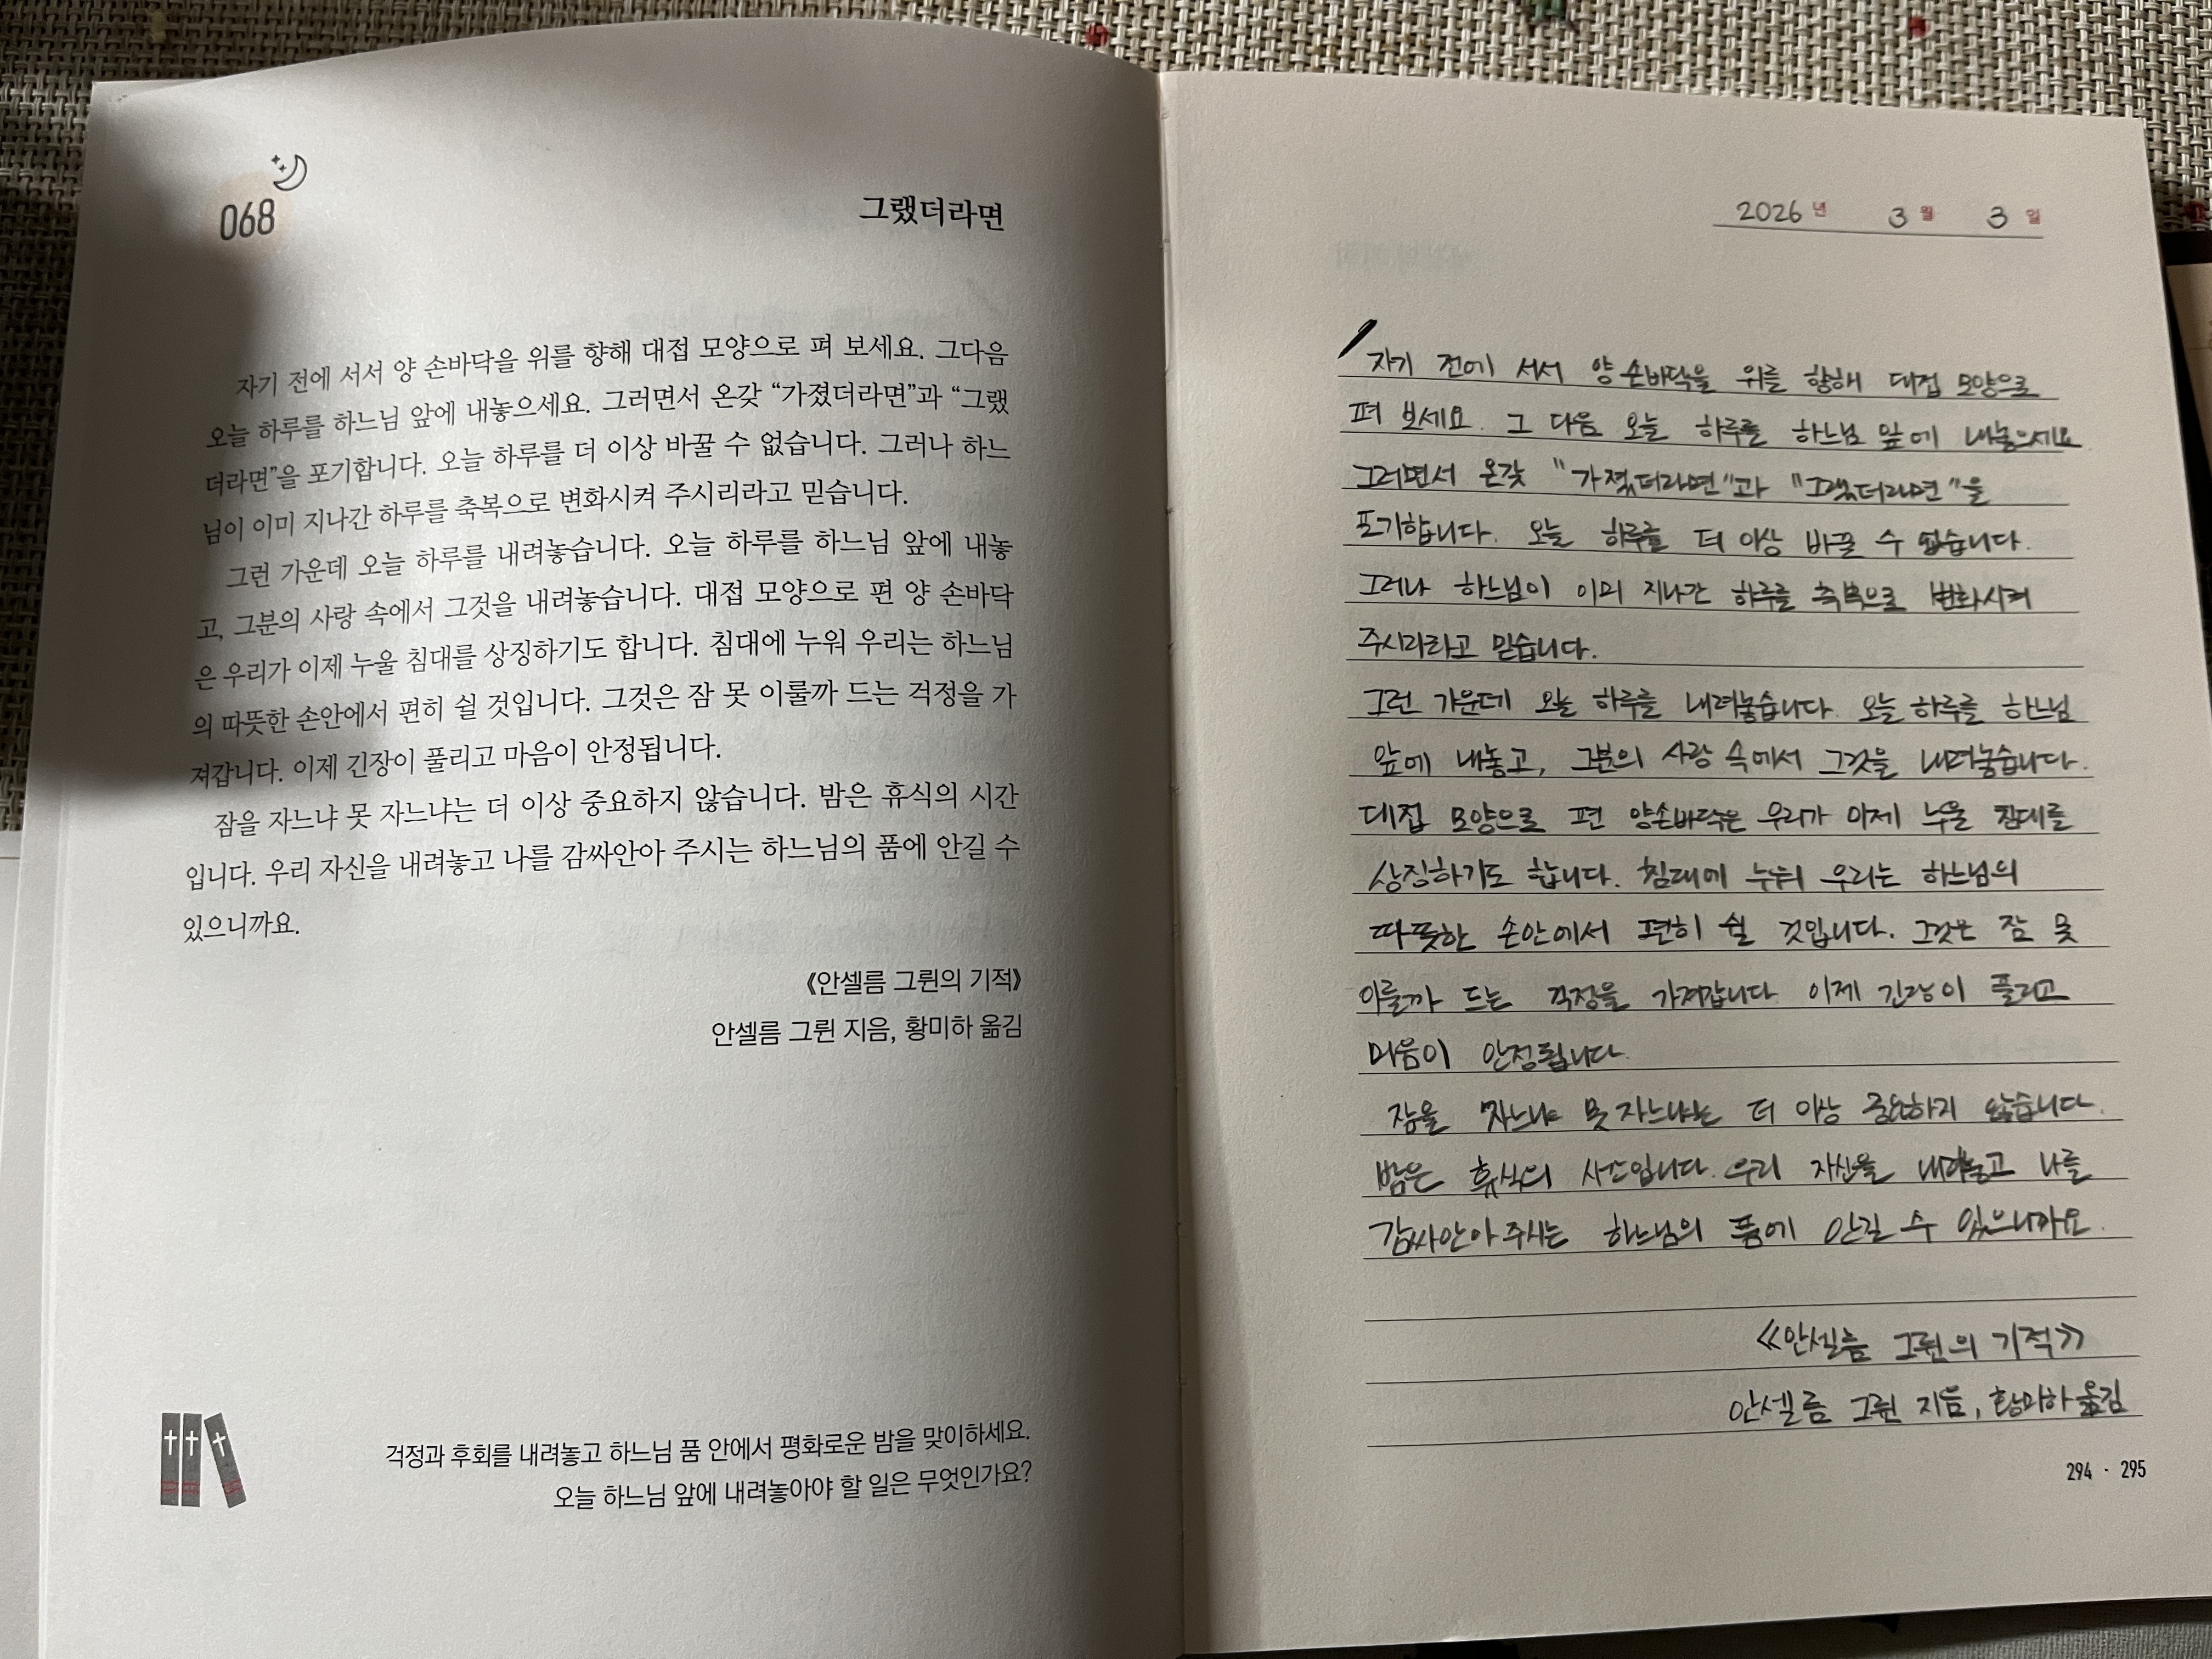 068
그랬더라면
자기 전에 서서 양 손바닥을 위를 향해 대접 모양으로 펴 보세요. 그다음
오늘 하루를 하느님 앞에 내놓으세요. 그러면서 온갖 “가졌더라면”과 “그랬
더라면”을 포기합니다. 오늘 하루를 더 이상 바꿀 수 없습니다. 그러나 하느
님이 이미 지나간 하루를 축복으로 변화시켜 주시리라고 믿습니다.
그런 가운데 오늘 하루를 내려놓습니다. 오늘 하루를 하느님 앞에 내놓
고, 그분의 사랑 속에서 그것을 내려놓습니다. 대접 모양으로 편 양 손바닥
은 우리가 이제 누울 침대를 상징하기도 합니다. 침대에 누워 우리는 하느님
의 따뜻한 손안에서 편히 쉴 것입니다. 그것은 잠 못 이룰까 드는 걱정을 가
져갑니다. 이제 긴장이 풀리고 마음이 안정됩니다.
잠을 자느냐 못 자느냐는 더 이상 중요하지 않습니다. 밤은 휴식의 시간
입니다. 우리 자신을 내려놓고 나를 감싸안아 주시는 하느님의 품에 안길 수
있으니까요.
《안셀름 그륀의 기적》
안셀름 그륀 지음, 황미하 옮김
걱정과 후회를 내려놓고 하느님 품 안에서 평화로운 밤을 맞이하세요.
오늘 하느님 앞에 내려놓아야 할 일은 무엇인가요?
2026년 3월 3일
자기 전에 서서 양 손바닥을 위를 향해 대접 모양으로
펴 보세요. 그 다음 오늘 하루를 하느님 앞에 내놓으세요
그러면서 온갖 "가졌더라면"과 "그랬더라면"을
포기합니다. 오늘 하루를 더 이상 바꿀 수 없습니다.
그러나 하느님이 이미 지나간 하루를 축복으로 변화시켜
주시리라고 믿습니다.
그런 가운데 오늘 하루를 내려놓습니다. 오늘 하루를 하느님
앞에 내놓고, 그분의 사랑 속에서 그것을 내려놓습니다.
대접 모양으로 편 양손바닥은 우리가 이제 누울 침대를
상징하기도 합니다. 침대에 누워 우리는 하느님의
따뜻한 손안에서 편히 쉴 것입니다. 그것은 잠 못
이룰까 드는 걱정을 가져갑니다. 이제 긴장이 풀리고
마음이 안정됩니다.
잠을 자느냐 못 자느냐는 더 이상 중요하지 않습니다.
밤은 휴식의 우리 자신을 내려놓고 나를
감싸안아 주시는 하느님의 품에 안길 수 있으니까요.
《안셀름 그륀의 기적》
안셀름 그륀 지음, 황미하 옮김
294 · 295